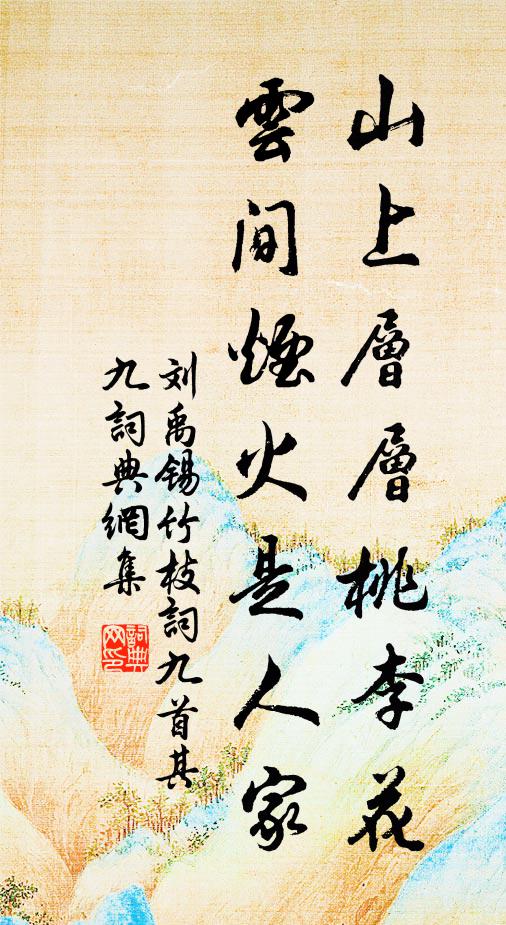 山上層層桃李花
雲間煙火是人家
刘禹錫竹枝詞九首其
九詞典網集
詞典
网印